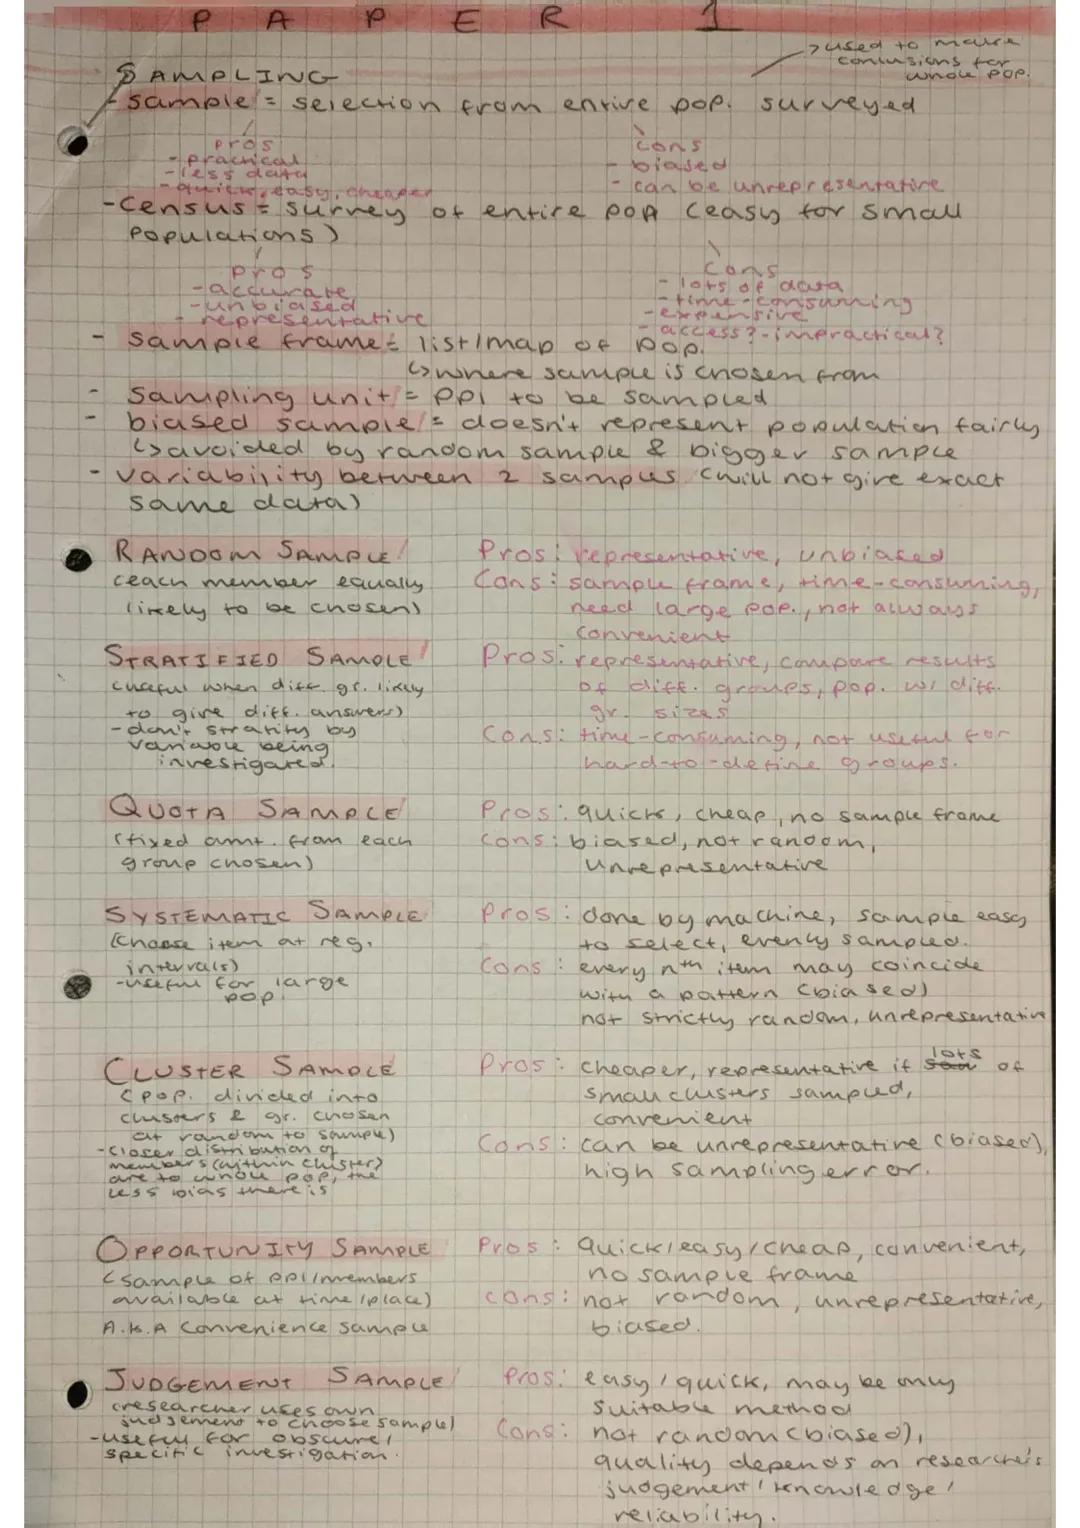 PAPER 1
SAMPLING
→ used to make
conclusions for
whole pop.
- sample = selection from entire pop. surveyed
pros
- practical
- less data
- quick, easy, cheaper
cons
- biased
- can be unrepresentative
- Census = survey of entire pop (easy for small
populations)
pros
- accurate
- unbiased
- representative
Cons
- lots of data
- time-consuming
- expensive
- access? - impractical?
- sample frame = list/map of pop.
↳ where sample is chosen from
- Sampling unit = ppl to be sampled
- biased sample = doesn't represent population fairly
↳ avoided by random sample & bigger sample
- variability between 2 samples (will not give exact
same data)
RANDOM SAMPLE
(each member equally
likely to be chosen)
Pros: representative, unbiased
Cons: sample frame, time-consuming,
need large pop., not always
convenient
STRATIFIED SAMPLE
(useful when diff. gr. likely
to give diff. answers)
- don't stratify by
variable being
investigated.
Pros: representative, compare results
of diff. groups, pop. w/ diff.
gr. sizes
Cons: time-consuming, not useful for
hard-to-define groups.
QUOTA SAMPLE
(fixed amt. from each
group chosen)
Pros: quick, cheap, no sample frame
Cons: biased, not random,
unrepresentative
SYSTEMATIC SAMPLE
(choose item at reg.
intervals)
- useful for large
pop.
Pros: done by machine, sample easy
to select, evenly sampled.
Cons: every nth item may coincide
with a pattern (biased)
not strictly random, unrepresentative
CLUSTER SAMPLE
(pop. divided into
clusters & gr. chosen
at random to sample)
- closer distribution of
members (within cluster)
are to whole pop, the
less bias there is
Pros: cheaper, representative if lots of
small clusters sampled,
convenient
Cons: can be unrepresentative (biased),
high sampling error.
OPPORTUNITY SAMPLE
(sample of ppl/members
available at time/place)
A.K.A convenience sample
Pros: quick/easy/cheap, convenient,
no sample frame
cons: not random, unrepresentative,
biased.
JUDGEMENT SAMPLE
(researcher uses own
judgement to choose sample)
- useful for obscure/
specific investigation.
Pros: easy/quick, may be only
suitable method
Cons: not random (biased),
quality depends on researcher's
judgement/knowledge/
reliability.